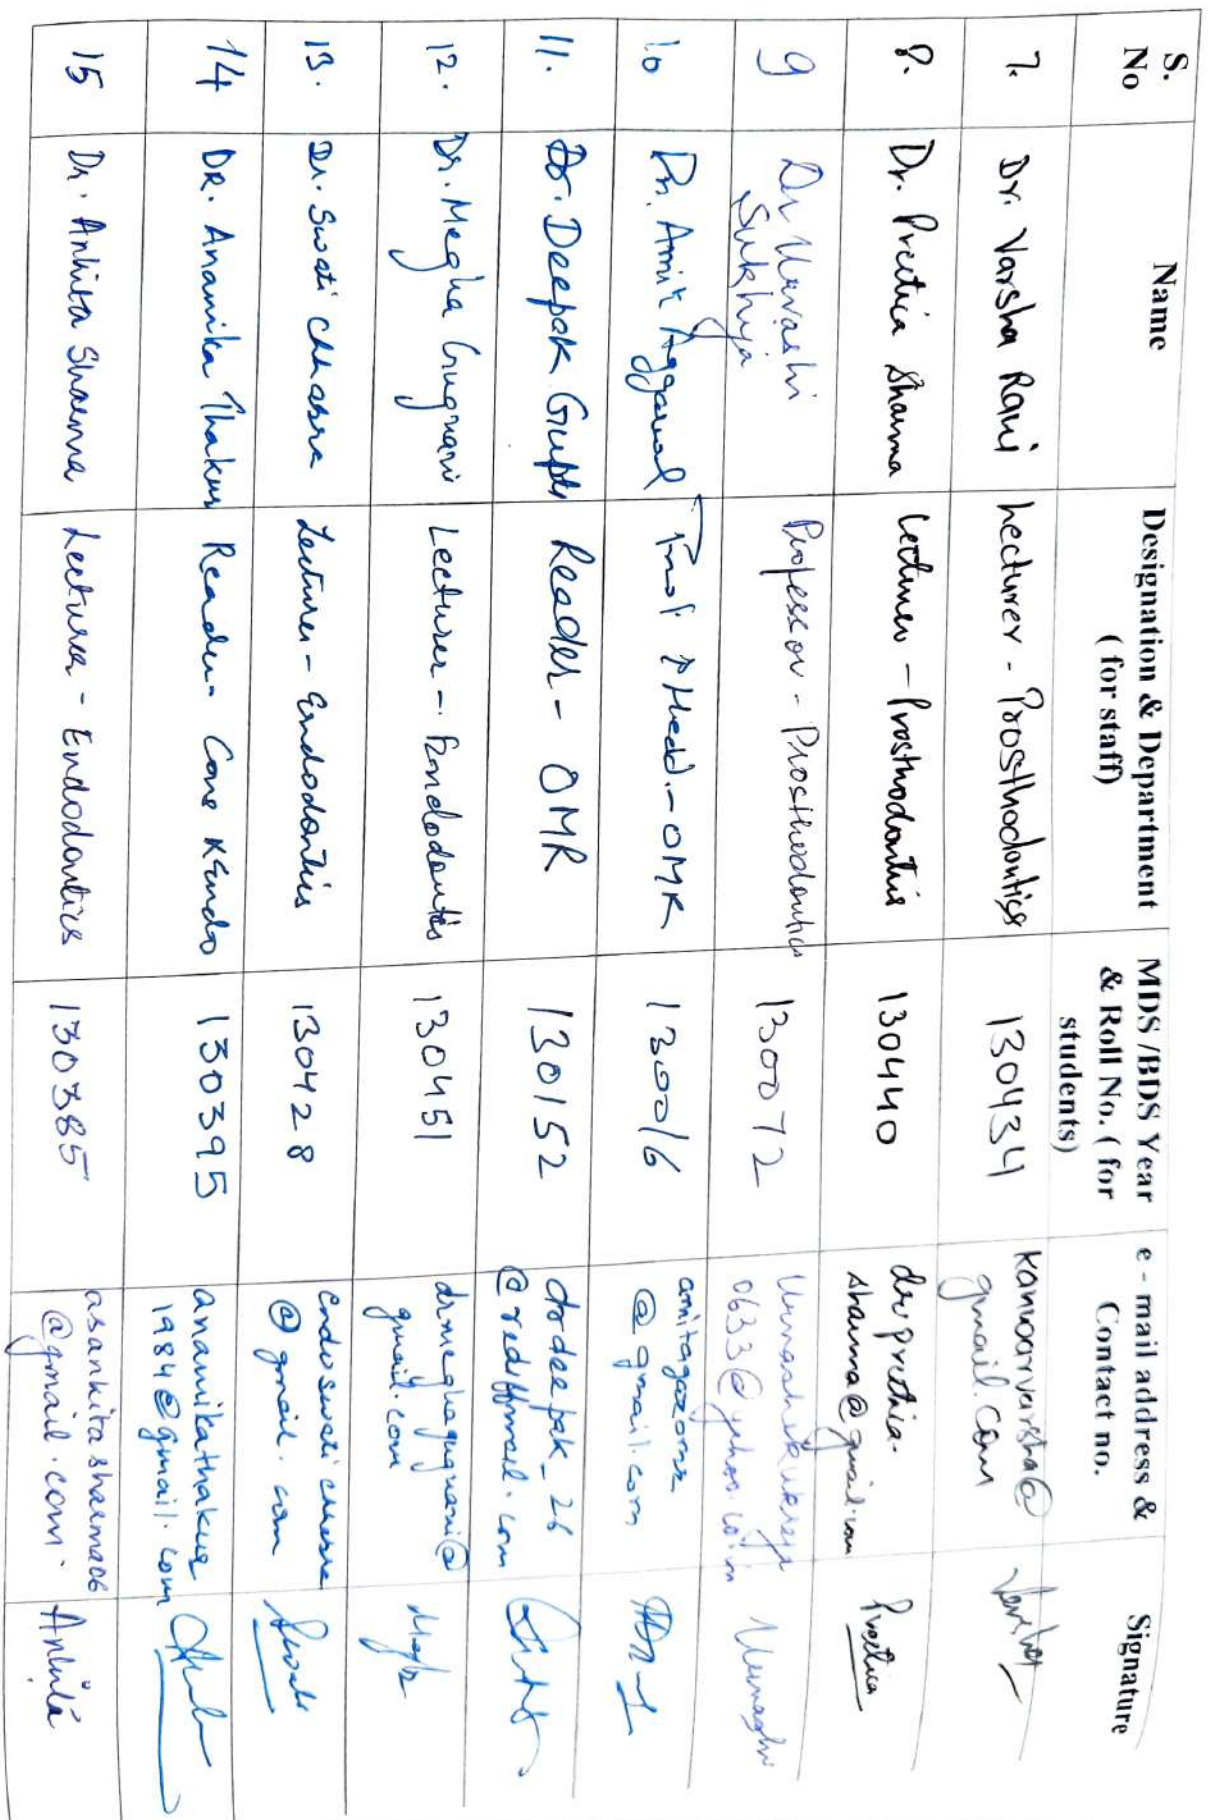 S. No
Name
Designation & Department ( for staff)
MDS /BDS Year & Roll No. ( for students)
e - mail address & Contact no.
Signature
7.
Dr. Varsha Rani
Lecturer - Prosthodontics
130434
kanwarvarsha@
gmail.com
8.
Dr. Preetica Sharma
Lecturer - Prosthodontics
130440
sharma@gmail.com
Preetica
9
Dr Urvashi
Sukhija
Professor - Prosthodontics
130072
0633@yahoo.co.in
Urvashi
10
Dr. Amit Aggarwal
Prof & Head - OMR
130016
@gmail.com
11.
Dr. Deepak Gupta
Reader - OMR
130152
drdeepak_26
@rediffmail.com
12.
Dr. Megha Gugnani
Lecturer - Endodontics
130451
drmeghagugnani@
gmail.com
Megha
13.
Dr. Swati Chhabra
Lecturer - Endodontics
130428
endoswatichhabra
@gmail.com
Swati
14
DR. Anamika Thakur
Reader - Cons & Endo
130395
anamikathakur
1984@gmail.com
15
Dr. Ankita Sharma
Lecturer - Endodontics
130385
asankitasharma06
@gmail.com.
Ankita